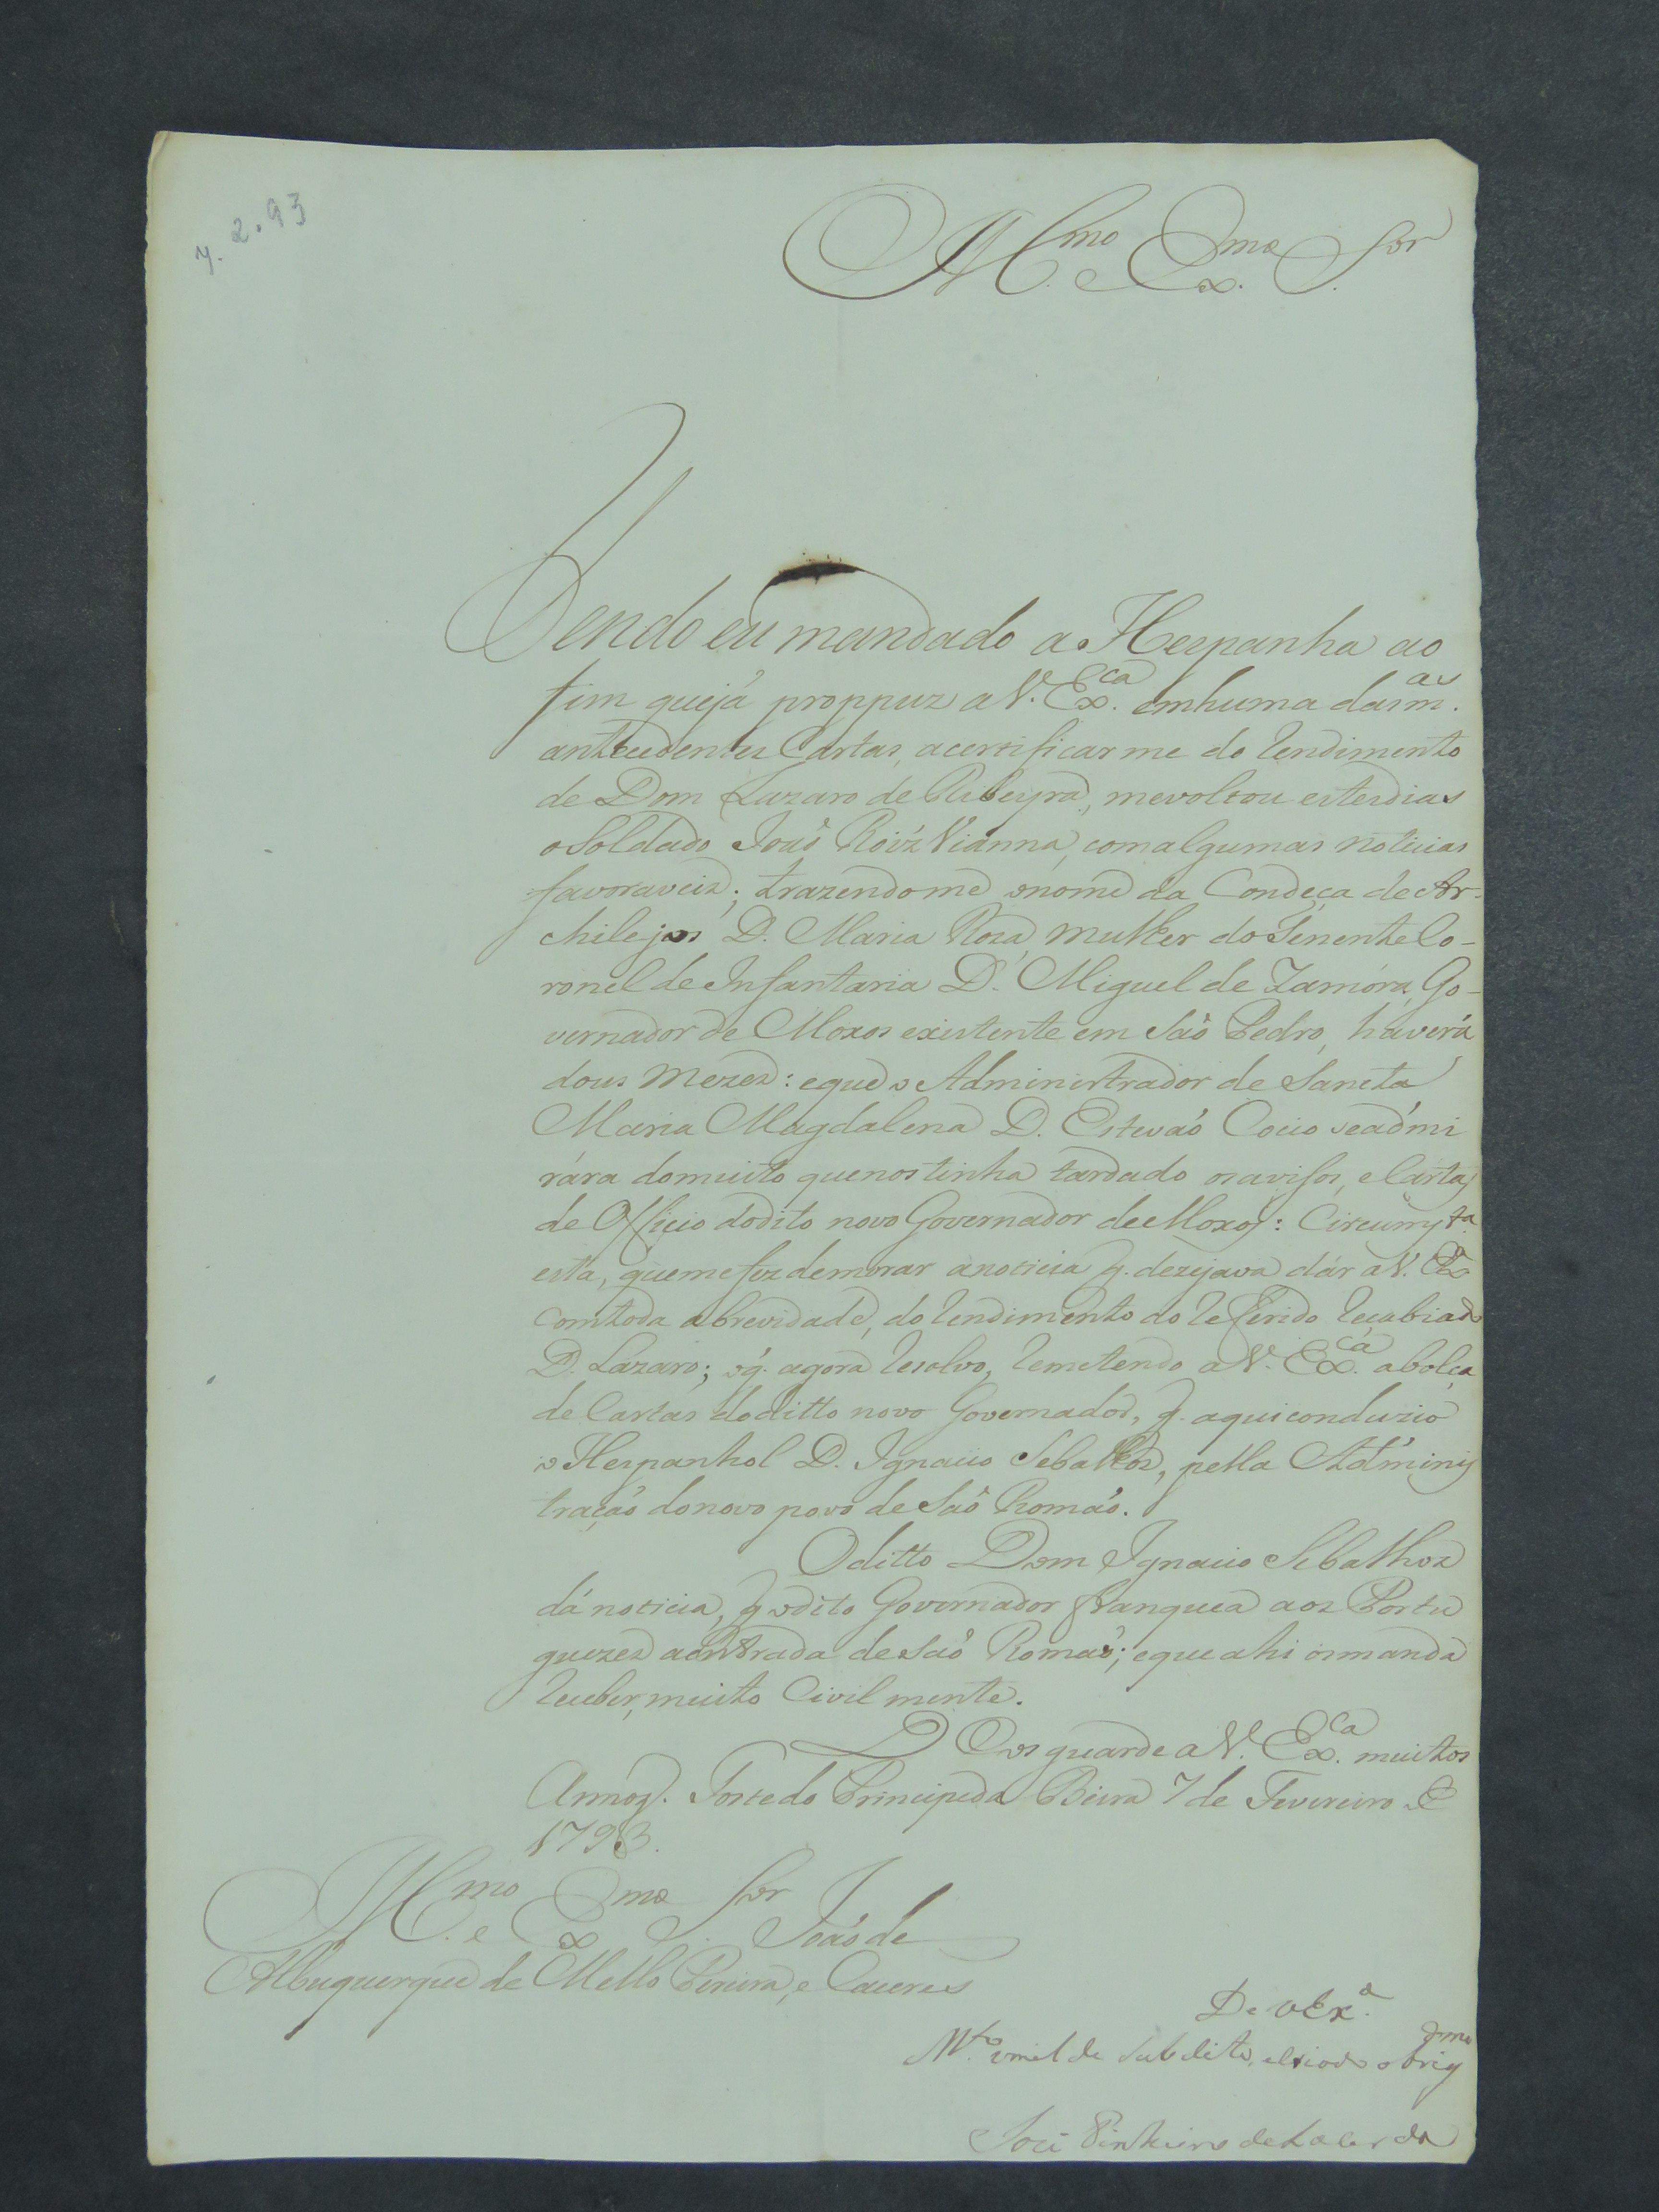 7.2.93
Ill.mo e Ex.mo S.or
Tendo eu mandado a Hespanha ao
fim que já proppuz a V. Ex.ca em huma das m.as
antecedentes Cartas, a certificar me do rendimento
de Dom Lazaro de Ribeyra, me voltou estes dias
o Soldado João Roiz Vianna, com algumas noticias
favoraveis; trazendo me o nome da Condeça de Ar-
chilejos D. Maria Roza, mulher do Tenente Co-
ronel de Infantaria D. Miguel de Zamóra, Go-
vernador de Moxos existente em São Pedro, haverá
dous mezes: e que o Administrador de Sancta
Maria Magdalena D. Estevão Coiio se admi
rára do muito que nos tinha tardado os avisos, e Cartas
de Officio do dito novo Governador de Moxos: Circumst.a
esta, que me fez demorar a noticia q. dezejava dár a V. Ex.a
com toda a brevidade, do rendimento do referido recabiado
D. Lazaro; o q. agora resolvo, remetendo a V. Ex.ca a bolça
de Cartas do ditto novo Governador, q. aqui conduzio
o Hespanhol D. Ignacio Sebalhos, pella Adminis
tração do novo povo de São Romão.
O ditto Dom Ignacio Sebalhos
dá noticia, q o dito Governador franquea aos Portu
guezes a entrada de São Romão; e que ahi os manda
receber, muito Civil mente.
D Eos guarde a V. Ex.ca muitos
Annos. Forte do Principe da Beira 7 de Fevereiro de
1793.
Ill.mo e Ex.mo S.or João de
Albuquerque de Mello Pereira, e Caceres
De V Ex.a
M.to umilde subdito, e Criado obrig.dmo
José Pinheiro de Lacerda